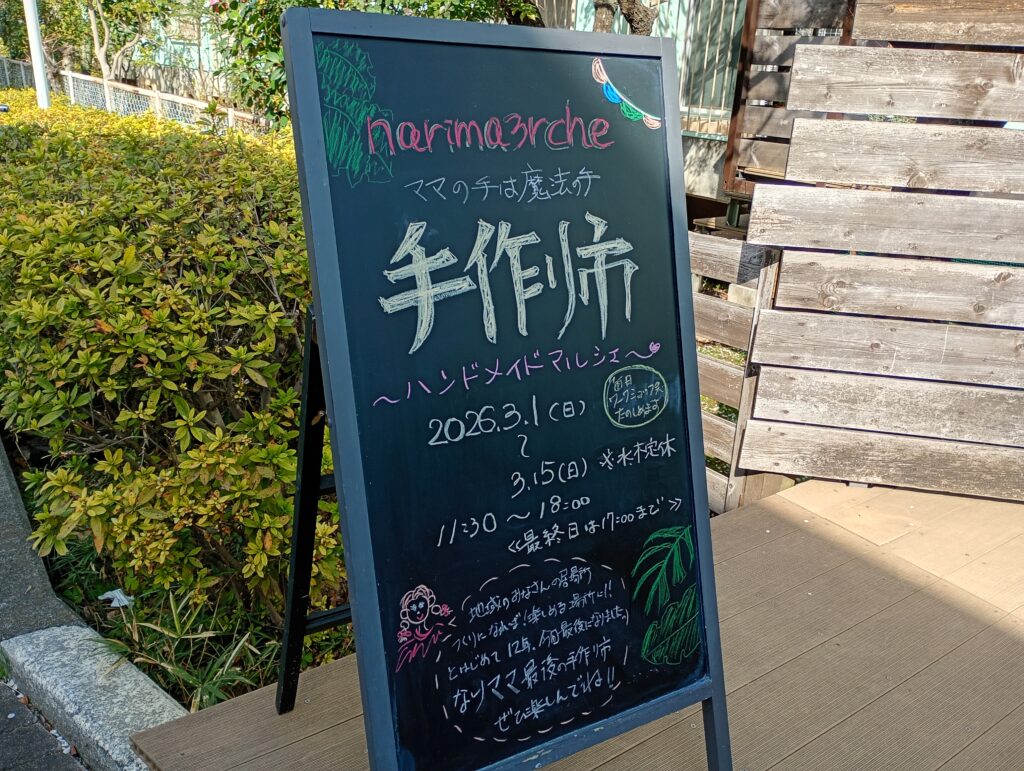 narima3rche
ママの手は魔法の手
手作り市
～ハンドメイドマルシェ～
毎日
ワークショップも
たのしめます
2026.3.1(日)
～
3.15(日) ※水木定休
11:30～18:00
≪最終日は17:00まで≫
地域のみなさんの居場所
づくりになれば!楽しめる場所に!!
とはじめて12年、今回最後になりました。
なりママ最後の手作り市
ぜひ楽しんでね!!